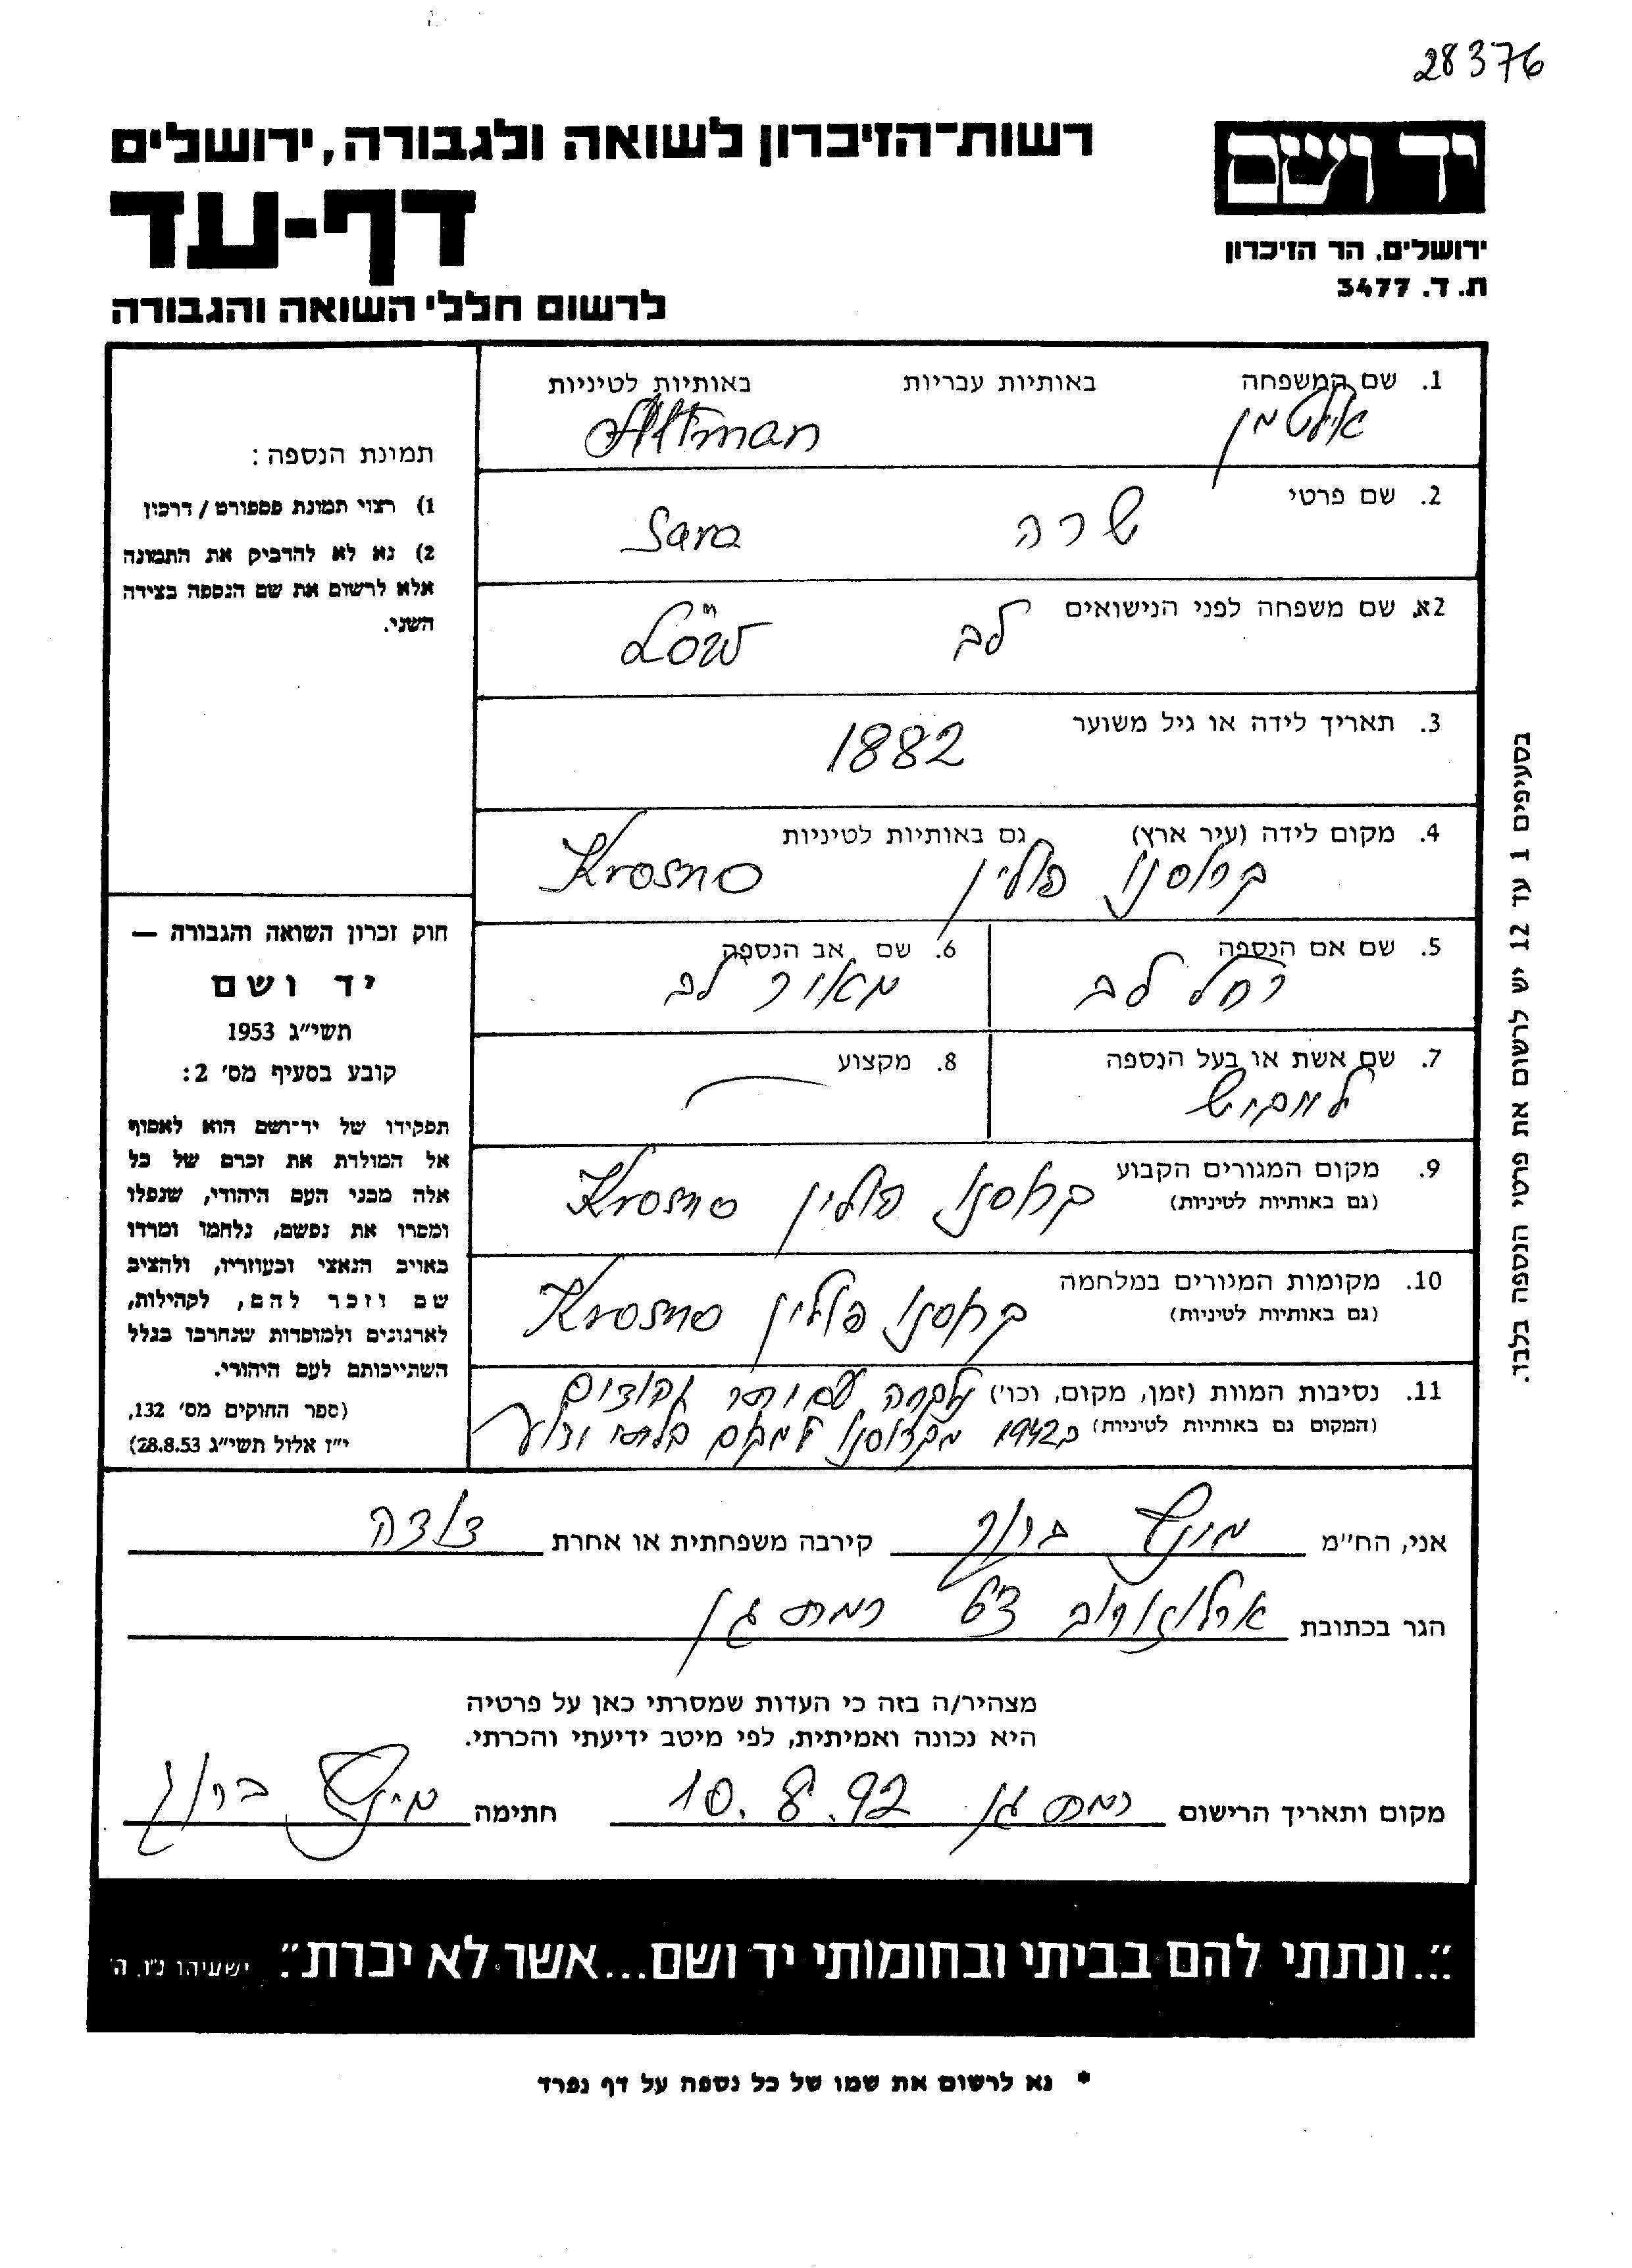 28376
יד ושם
ירושלים, הר הזיכרון
ת. ד. 3477
רשות-הזיכרון לשואה ולגבורה, ירושלים
דף-עד
לרשום חללי השואה והגבורה
תמונת הנספה:
1) רצוי תמונת פספורט / דרכון
2) נא לא להדביק את התמונה
אלא לרשום את שם הנספה בצידה
השני.
חוק זכרון השואה והגבורה —
יד ושם
תשי״ג 1953
קובע בסעיף מס׳ 2:
תפקידו של יד־ושם הוא לאסוף
אל המולדת את זכרם של כל
אלה מבני העם היהודי, שנפלו
ומסרו את נפשם, נלחמו ומרדו
באויב הנאצי ובעוזריו, ולהציב
שם וזכר להם, לקהילות,
לארגונים ולמוסדות שנחרבו בגלל
השתייכותם לעם היהודי.
(ספר החוקים מס׳ 132,
י״ז אלול תשי״ג 28.8.53)
1. שם המשפחה באותיות עבריות באותיות לטיניות
אלטמן Altman
2. שם פרטי שרה Sara
2א. שם משפחה לפני הנישואים לב Löw
3. תאריך לידה או גיל משוער 1882
4. מקום לידה (עיר ארץ) גם באותיות לטיניות
קרוסנו פולין Krosno
5. שם אם הנספה 6. שם אב הנספה
רחל לב מאיר לב
7. שם אשת או בעל הנספה 8. מקצוע
ליביש
9. מקום המגורים הקבוע קרוסנו פולין Krosno
(גם באותיות לטיניות)
10. מקומות המגורים במלחמה קרוסנו פולין Krosno
(גם באותיות לטיניות)
11. נסיבות המוות (זמן, מקום, וכו׳) נלקחה עם יתר יהודים
(המקום גם באותיות לטיניות) ב1942 מקרוסנו למקום בלתי ידוע
בסעיפים 1 עד 12 יש לרשום את פרטי הנספה בלבד.
אני, הח״מ מינץ ברוך קירבה משפחתית או אחרת דודה
הגר בכתובת ארלוזורוב רמת גן
מצהיר/ה בזה כי העדות שמסרתי כאן על פרטיה
היא נכונה ואמיתית, לפי מיטב ידיעתי והכרתי.
מקום ותאריך הרישום רמת גן 10.8.92 חתימה מינץ ברוך
״...ונתתי להם בביתי ובחומותי יד ושם...אשר לא יכרת״. ישעיהו נ״ו, ה׳
* נא לרשום את שמו של כל נספה על דף נפרד